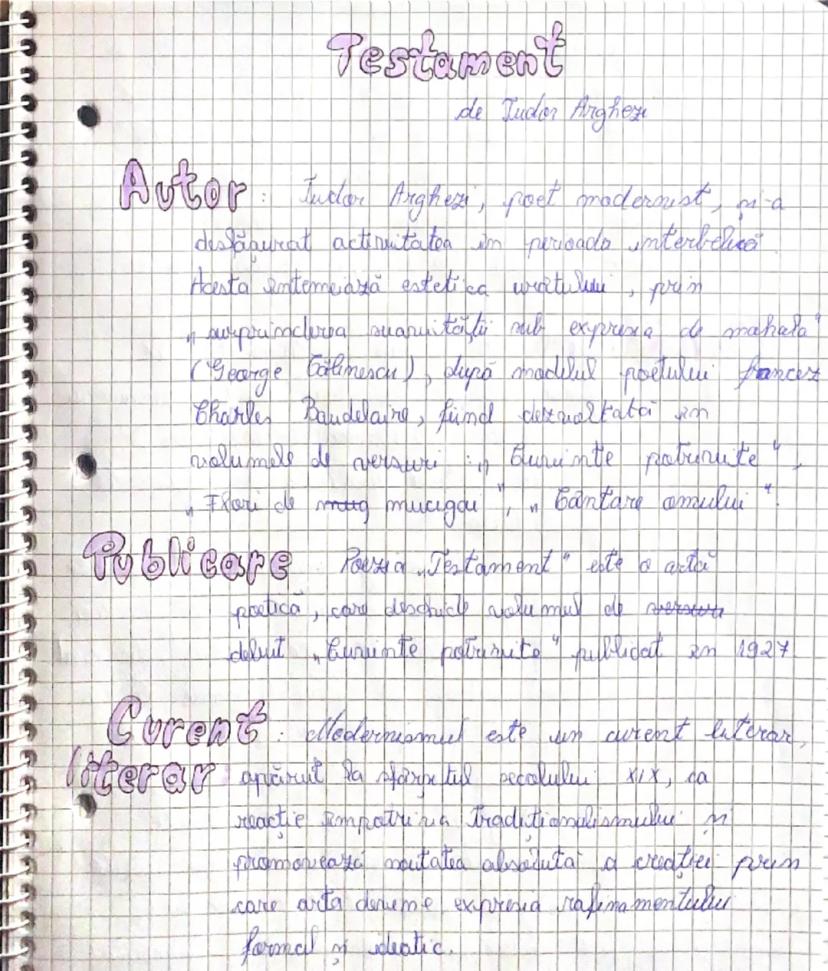 Testament
de Tudor Arghezi
Autor: Tudor Arghezi, poet modernist, și-a
desfășurat activitatea în perioada interbelică.
Acesta întemeiază estetica urâtului, prin
„surprinderea suavității sub expresia de mahala"
(George Călinescu), după modelul poetului francez
Charles Baudelaire, fiind dezvoltată în
volumele de versuri: „Cuvinte potrivite",
„Flori de mug mucigai", „Cântare omului".
Publicare Poezia „Testament" este o artă
poetică, care deschide volumul de versuri
debut „Cuvinte potrivite" publicat în 1927
Curent : Modernismul este un curent literar,
literar apărut la sfârșitul secolului XIX, ca
reacție împotriva tradiționalismului și
promovează noutatea absolută a creației prin
care arta devine expresia rafinamentului
formal și ideatic.